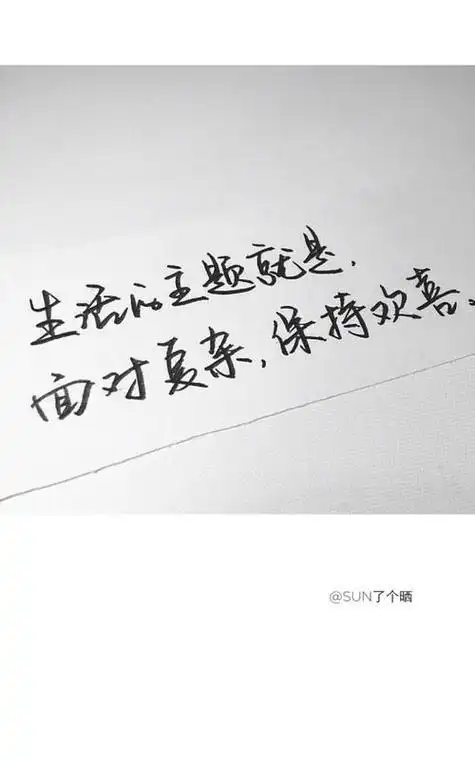 生活的主题就是，
面对复杂，保持欢喜。
@SUN了个晒